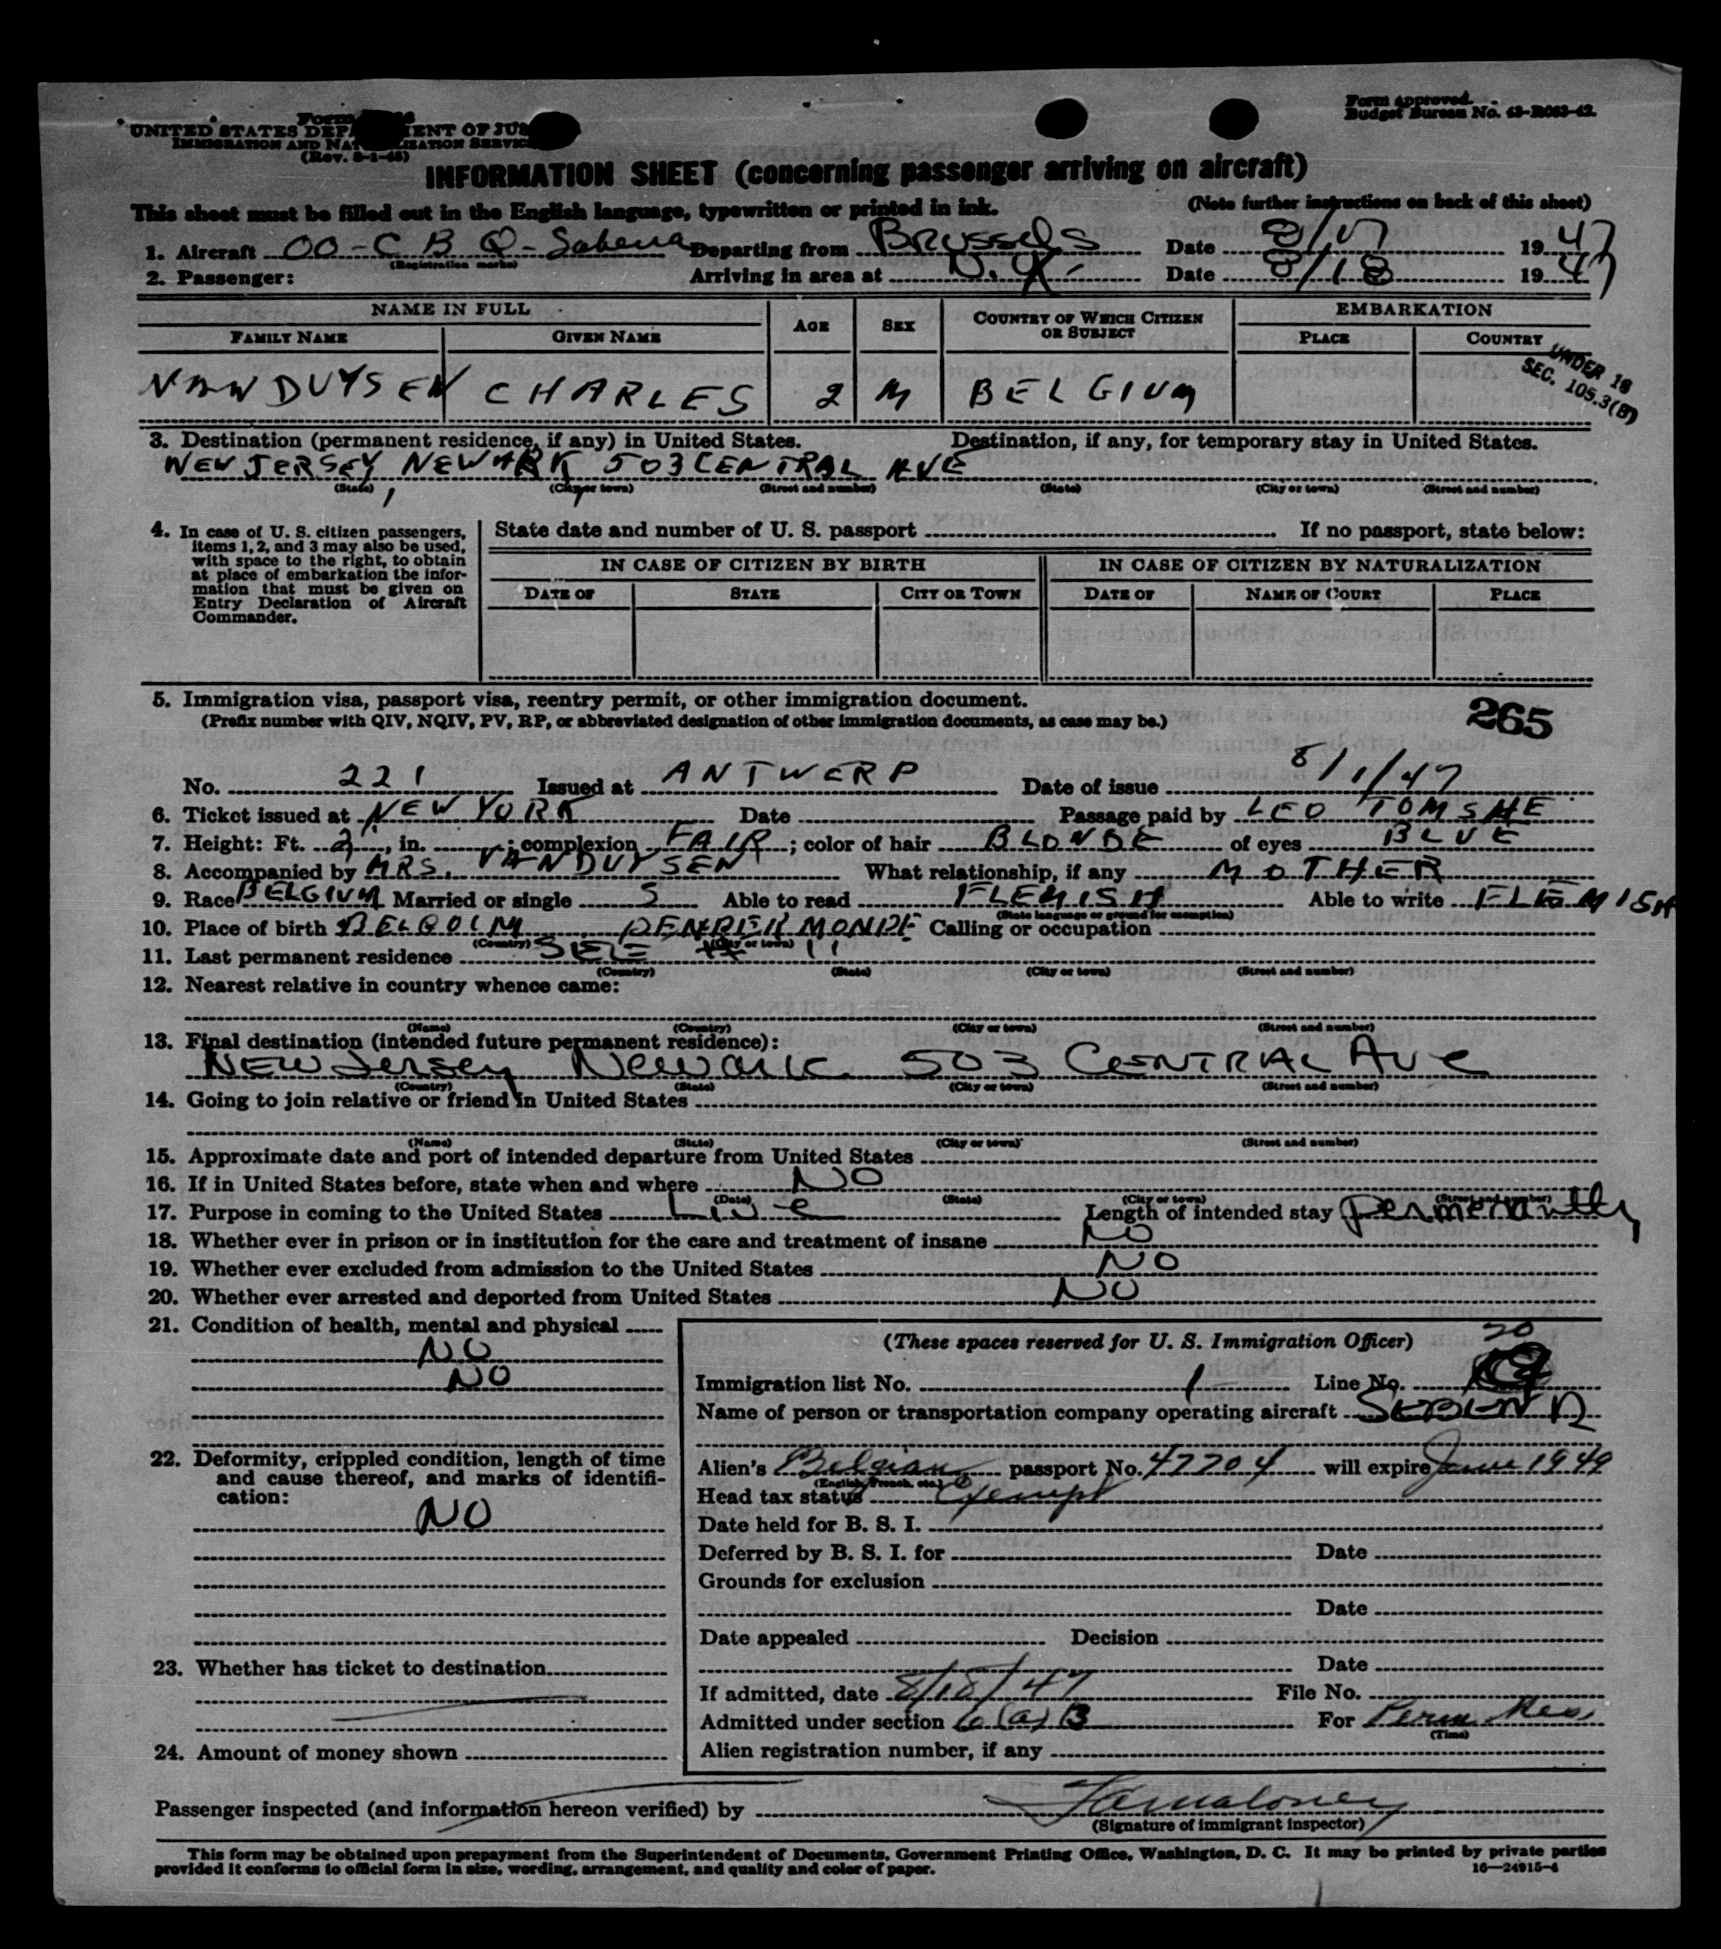 Form approved.
Budget Bureau No. 43-R063-42.
Form
UNITED STATES DEPARTMENT OF JUS
IMMIGRATION AND NATURALIZATION SERVICE
(Rev. 8-1-45)
INFORMATION SHEET (concerning passenger arriving on aircraft)
This sheet must be filled out in the English language, typewritten or printed in ink. (Note further instructions on back of this sheet)
1. Aircraft OO-C B Q-Sabena Departing from BRUSSELS Date 8/17 1947
(Registration marks)
2. Passenger: Arriving in area at N.Y. Date 8/18 1947
NAME IN FULL AGE SEX COUNTRY OF WHICH CITIZEN OR SUBJECT EMBARKATION
FAMILY NAME GIVEN NAME PLACE COUNTRY
UNDER 16
SEC. 105.3(B)
VAN DUYSEN CHARLES 2 M BELGIUM
3. Destination (permanent residence, if any) in United States. Destination, if any, for temporary stay in United States.
NEW JERSEY, NEWARK, 503 CENTRAL AVE
(State) (City or town) (Street and number) (State) (City or town) (Street and number)
4. In case of U. S. citizen passengers, items 1, 2, and 3 may also be used, with space to the right, to obtain at place of embarkation the information that must be given on Entry Declaration of Aircraft Commander.
State date and number of U. S. passport If no passport, state below:
IN CASE OF CITIZEN BY BIRTH IN CASE OF CITIZEN BY NATURALIZATION
DATE OF STATE CITY OR TOWN DATE OF NAME OF COURT PLACE
5. Immigration visa, passport visa, reentry permit, or other immigration document.
(Prefix number with QIV, NQIV, PV, RP, or abbreviated designation of other immigration documents, as case may be.)
265
No. 221 Issued at ANTWERP Date of issue 8/1/47
6. Ticket issued at NEW YORK Date Passage paid by LEO TOMSHE
7. Height: Ft. 2', in. ; complexion FAIR ; color of hair BLONDE of eyes BLUE
8. Accompanied by MRS. VANDUYSEN What relationship, if any MOTHER
9. Race BELGIUM Married or single S Able to read FLEMISH Able to write FLEMISH
(State language or ground for exemption)
10. Place of birth BELGOIM DENDERMONDE Calling or occupation
(Country) (City or town)
11. Last permanent residence SELE # 11
(Country) (State) (City or town) (Street and number)
12. Nearest relative in country whence came:
(Name) (Country) (City or town) (Street and number)
13. Final destination (intended future permanent residence):
NEW Jersey Newark 503 CENTRAL AVE
(Country) (State) (City or town) (Street and number)
14. Going to join relative or friend in United States
(Name) (State) (City or town) (Street and number)
15. Approximate date and port of intended departure from United States
16. If in United States before, state when and where NO
(Date) (State) (City or town) (Street and number)
17. Purpose in coming to the United States Live Length of intended stay permenantly
18. Whether ever in prison or in institution for the care and treatment of insane NO
19. Whether ever excluded from admission to the United States NO
20. Whether ever arrested and deported from United States NO
21. Condition of health, mental and physical
NO
NO
22. Deformity, crippled condition, length of time and cause thereof, and marks of identification:
NO
23. Whether has ticket to destination
24. Amount of money shown
(These spaces reserved for U. S. Immigration Officer)
20
Immigration list No. 1 Line No.
Name of person or transportation company operating aircraft SEBENA
Alien's Belgian passport No. 47704 will expire June 1949
(English, French, etc.)
Head tax status Exempt
Date held for B. S. I.
Deferred by B. S. I. for Date
Grounds for exclusion
Date
Date appealed Decision
Date
If admitted, date 8/18/47 File No.
Admitted under section 6(a)B For Perm Res.
(Time)
Alien registration number, if any
Passenger inspected (and information hereon verified) by
(Signature of immigrant inspector)
This form may be obtained upon prepayment from the Superintendent of Documents, Government Printing Office, Washington, D. C. It may be printed by private parties
provided it conforms to official form in size, wording, arrangement, and quality and color of paper. 16—24915-4